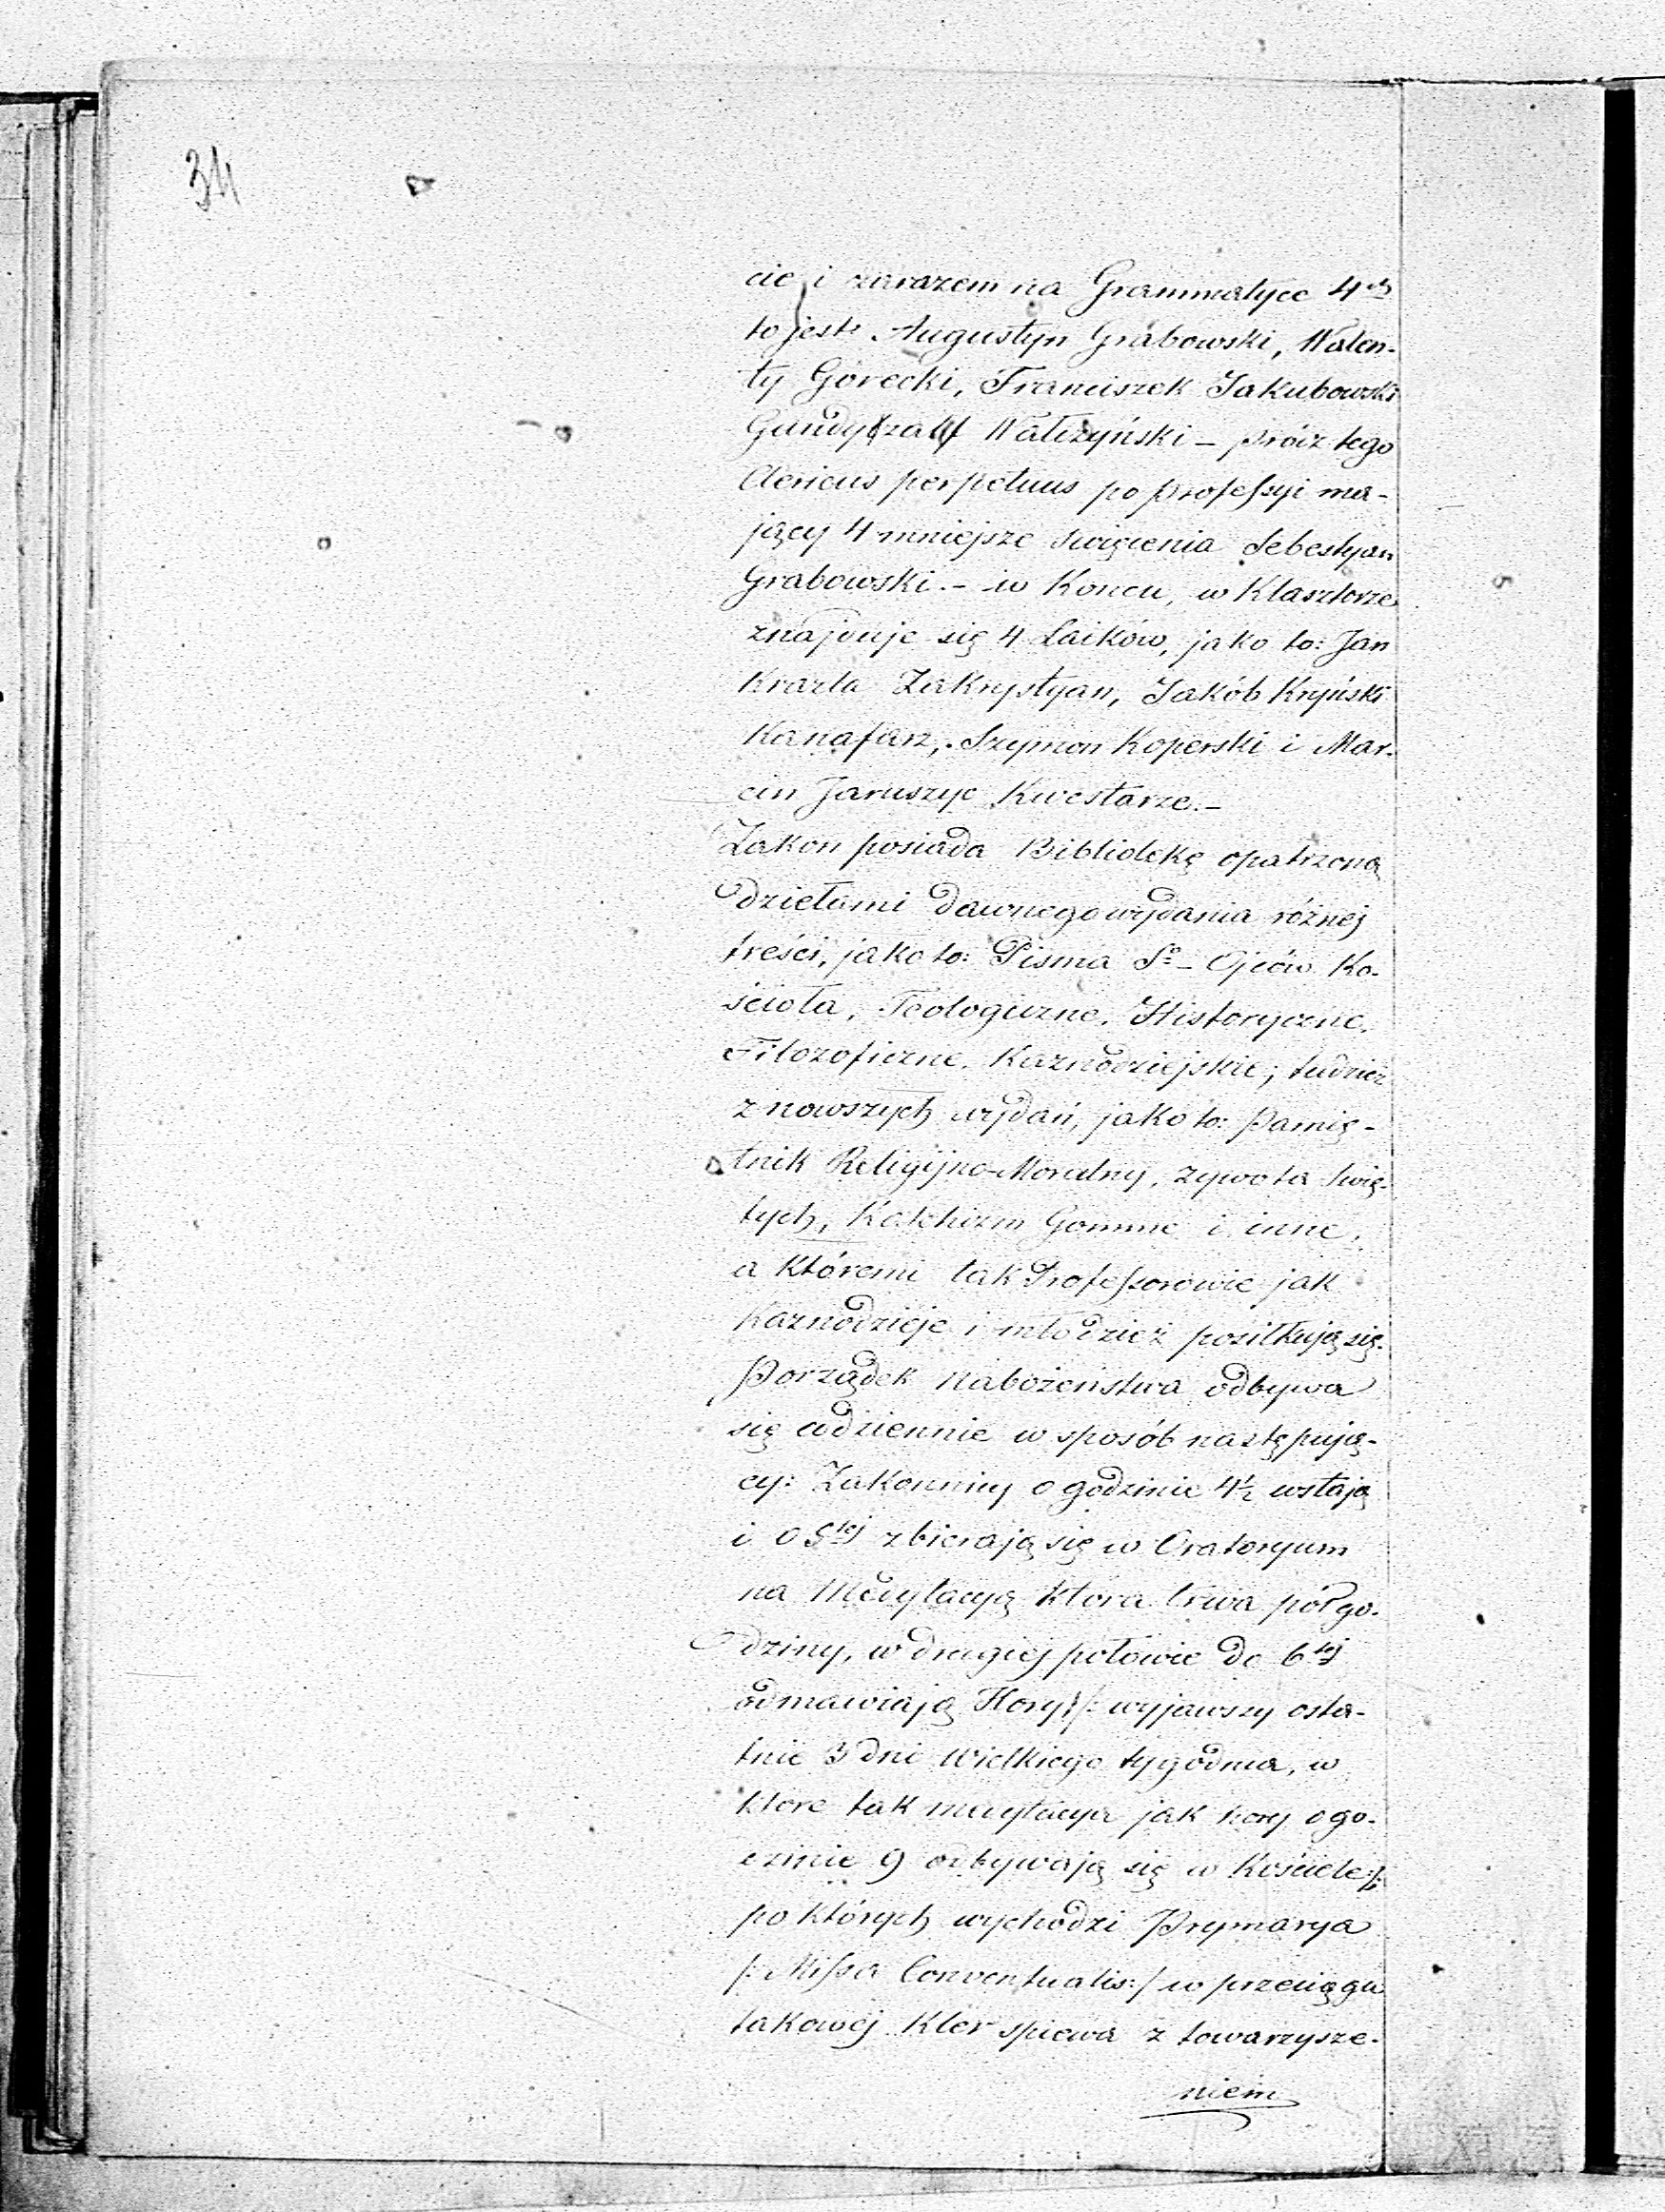 34
cie i zarazem na Grammatyce 4ch
to jest Augustyn Grabowski, Walen-
ty Gorecki, Franciszek Jakubowski
Walczyński – prócz tego
Clericus perpetuus po professyi ma-
jący 4 mniejsze święcenia Sebestyan
Grabowski. – w Koncu, w Klasztorze
znajduje się 4 Laików, jako to: Jan
Krazta Zakrystyan, Jakób Kryński
Kanafarz, Szymon Koperski i Mar-
cin Jaruszyc Kwestarze. –
Zakon posiada Bibliotekę opatrzoną
dziełami dawnego wydania różnej
treści, jako to: Pisma So – Ojców Ko-
ścioła, Teologiczne, Historyczne,
Filozoficzne, Kaznodziejskie; tudzież
z nowszych wydań, jako to: Pamię-
tnik Religijno-Moralny, zywota Świę-
tych, Katehizm Gomme i inne,
a któremi tak Professorowie jak
Kaznodzieje i młodzież posiłkują się.
Porządek Nabożeństwa odbywa
się codziennie w sposób następują-
cy: Zakonnicy o godzinie 4½ wstają
i o 5tej zbierają się w Oratoryum
na Medytacyą ktora trwa pół go-
dziny, w drugiej połowie do 6tej
odmawiają Hory /: wyjąwszy osta-
tnie 3 dni Wielkiego tygodnia, w
ktore tak medytacya jak hory o go-
dzinie 9 odbywają się w Kościele :/
po których wychodzi Prymarya
/: Missa Conventualis :/ w przeciągu
takowej Kler spiewa z towarzysze-
niem